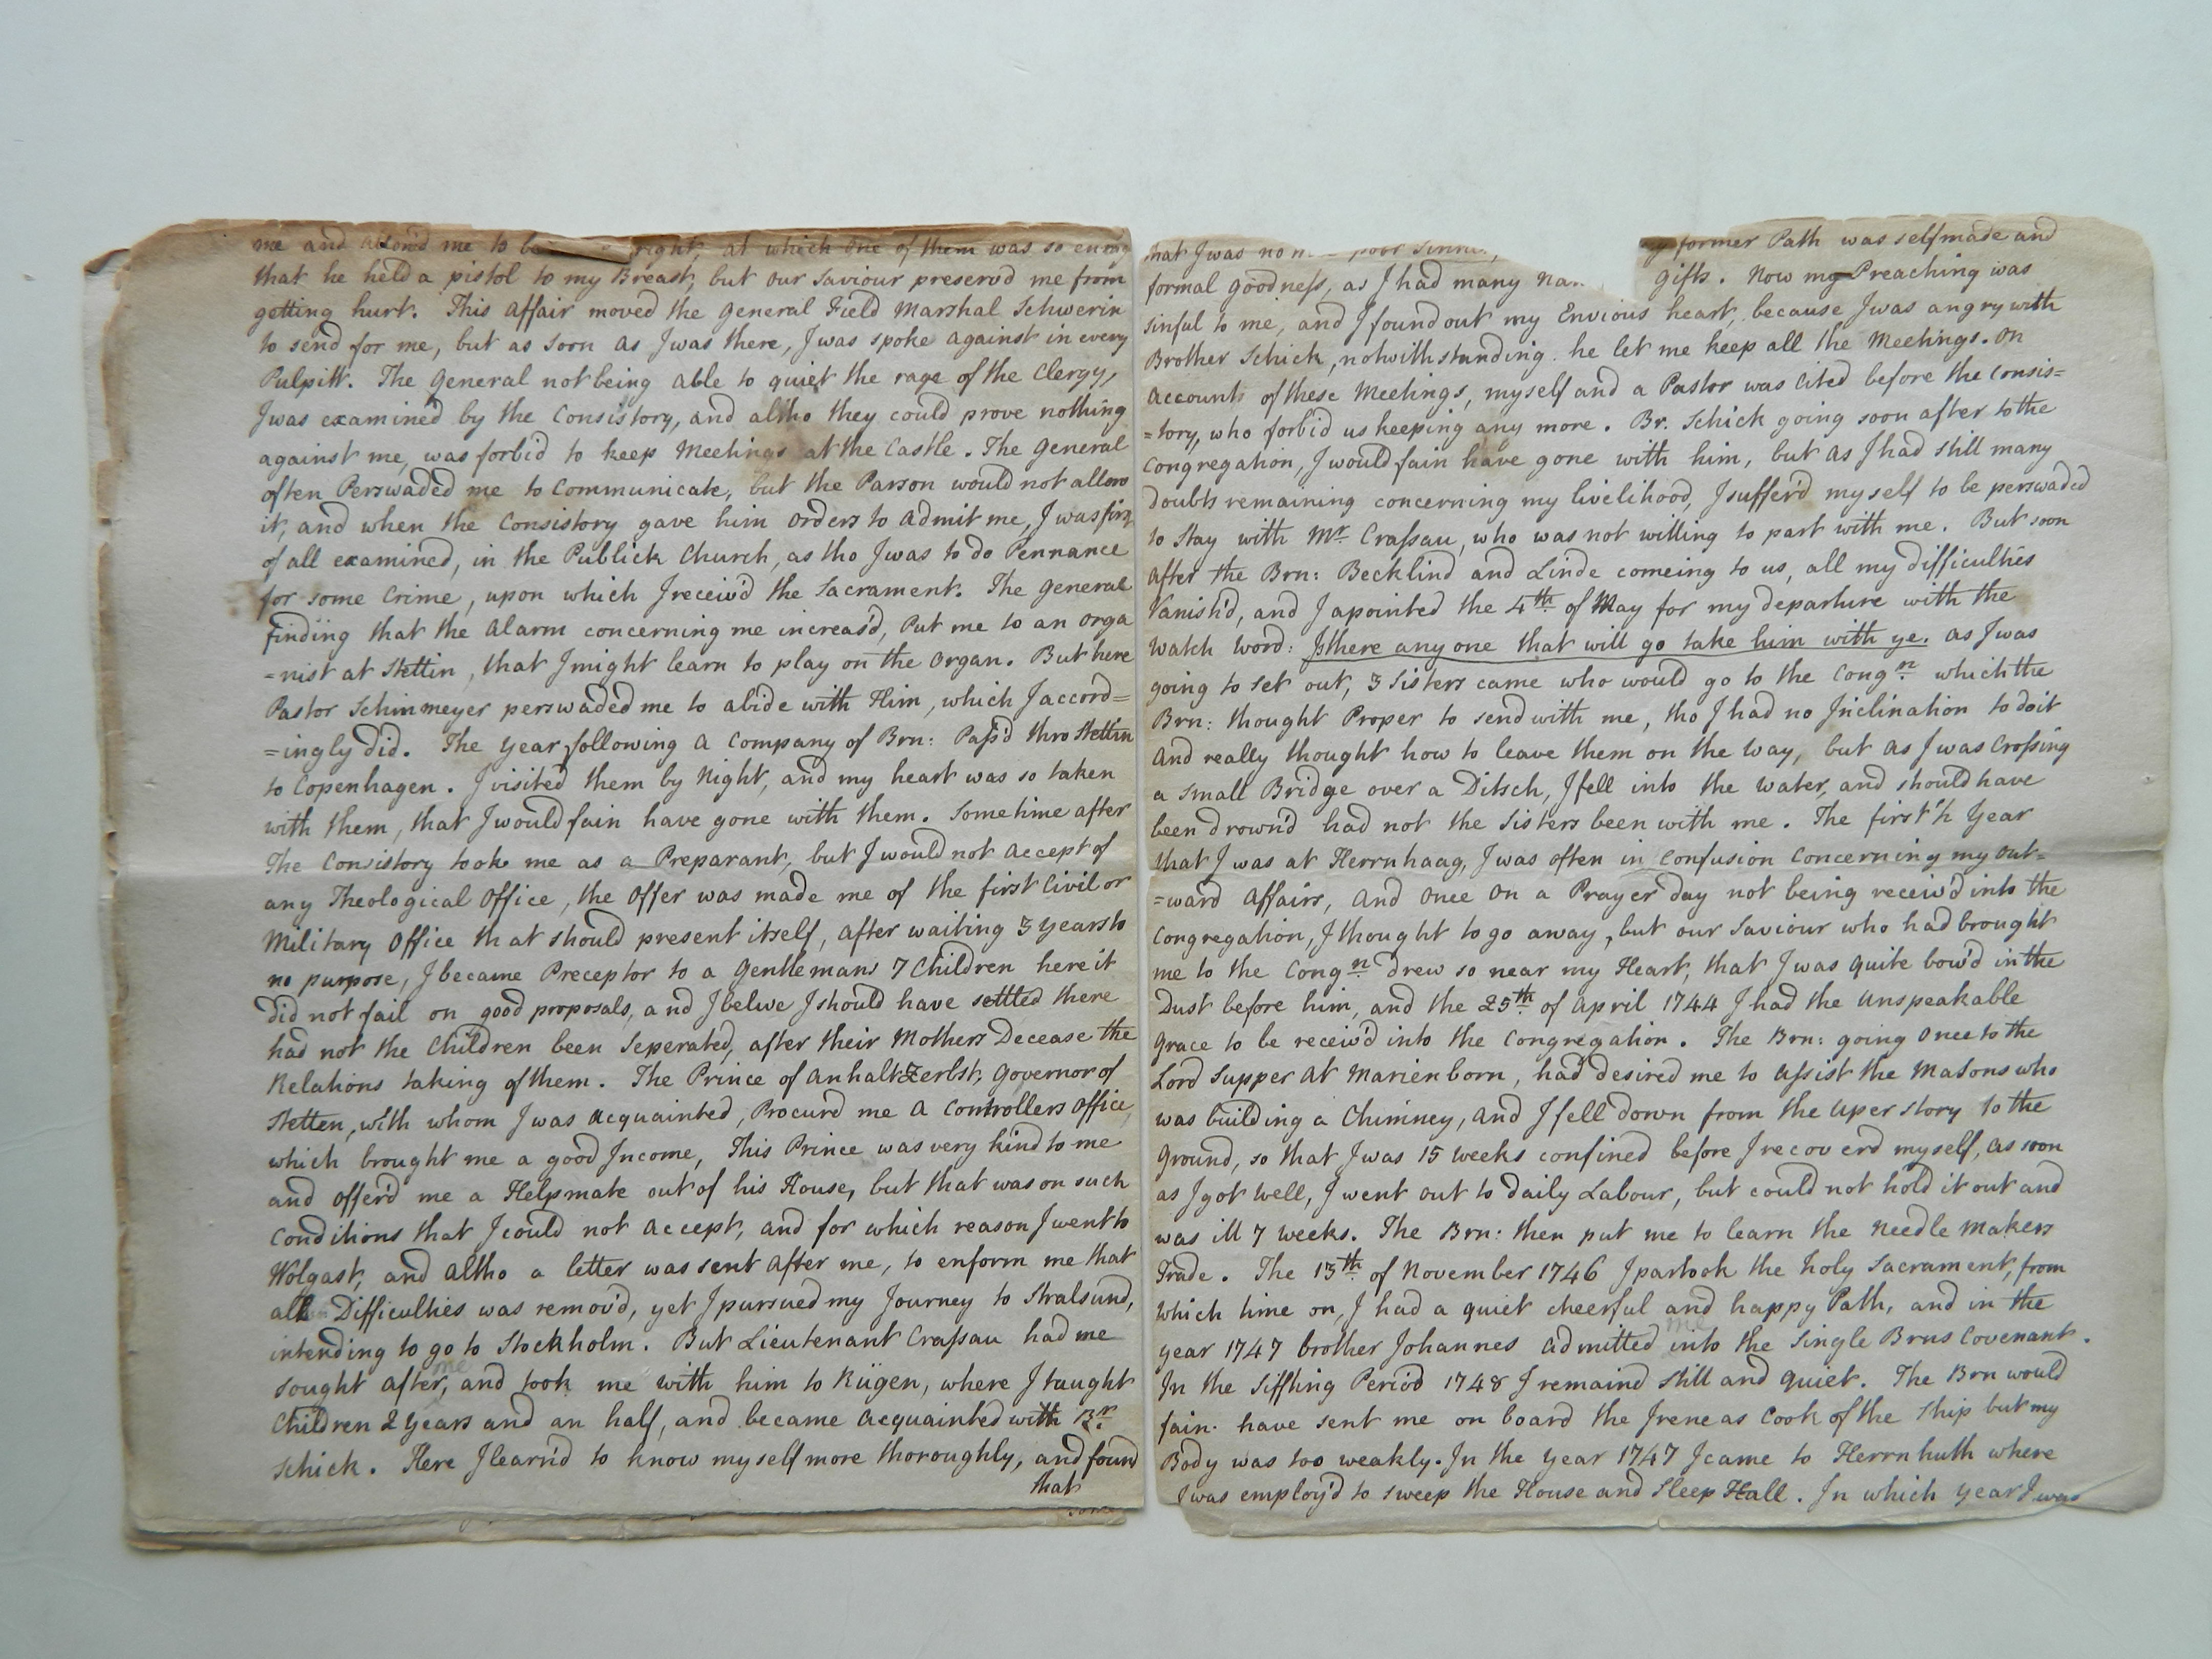 me and allow'd me to be right, at which one of them was so
that he held a pistol to my Breast, but our Saviour preserv'd me from
getting hurt. This affair moved the General Field Marshal Schwerin
to send for me, but as soon as I was there, I was spoke against in every
Pulpitt. The General not being able to quiet the rage of the Clergy,
I was examined by the Consistory, and altho they could prove nothing
against me, was forbid to keep Meetings at the Castle. The General
often Perswaded me to Communicate, but the Parson would not allow
it, and when the Consistory gave him orders to admit me, I was first
of all examined, in the Publick Church, as tho I was to do Pennance
for some Crime, upon which I receiv'd the Sacrament. The General
finding that the Alarm concerning me increas'd, Put me to an orga
=nist at Stettin, that I might learn to play on the Organ. But here
Pastor Schinmeyer perswaded me to abide with Him, which I accord=
=ingly did. The Year following a Company of Brn: Pass'd thro Stettin
to Copenhagen. I visited them by Night, and my heart was so taken
with them, that I would fain have gone with them. Sometime after
The Consistory took me as a Preparant, but I would not accept of
any Theological Office, the Offer was made me of the first Civil or
Military Office that should present itself, after waiting 3 Years to
no purpose, I became Preceptor to a Gentlemans 7 Children here it
did not fail on good proposals, and I belive I should have settled there
had not the Children been Seperated, after their Mothers Decease the
Relations taking of them. The Prince of Anhalt Zerbst, Governor of
Stetten, with whom I was Acquainted, Procurd me a Controllers Office,
which brought me a good Income, This Prince was very kind to me
and offer'd me a Helpmate out of his House, but that was on such
Conditions that I could not accept, and for which reason I went to
Wolgast, and altho a letter was sent after me, to enform me that
all Difficulties was remov'd, yet I pursued my Journey to Stralsund,
intending to go to Stockholm. But Lieutenant Crassau had me
sought after, me and took me with him to Rügen, where I taught
Children 2 Years and an half, and became Acquainted with Br.
Schick. Here I learn'd to know myself more thoroughly, and found
that
that I was no poor my former Path was selfmade and
formal goodness, as I had many gifts. Now my Preaching was
sinful to me, and I found out my Envious heart, because I was angry with
Brother Schick, notwithstanding he let me keep all the Meetings. On
accounts of these Meetings, myself and a Pastor was Cited before the Consis=
=tory, who forbid us keeping any more. Br. Schick going soon after to the
Congregation, I would fain have gone with him, but as I had still many
doubts remaining concerning my livelihood, I suffer'd myself to be perswaded
to Stay with Mr. Crassau, who was not willing to part with me. But soon
after the Brn: Becklind and Linde comeing to us, all my difficulties
Vanish'd, and I apointed the 4th of May for my departure with the
Watch Word: Is there any one that will go take him with ye. As I was
going to set out, 3 Sisters came who would go to the Congn. which the
Brn: thought Proper to send with me, tho I had no Inclination to do it
And really thought how to leave them on the Way, but as I was Crossing
a Small Bridge over a Ditsch, I fell into the Water, and should have
been drown'd had not the Sisters been with me. The first ½ Year
that I was at Herrnhaag, I was often in Confusion Concerning my out=
=ward Affairs, and once on a Prayer day not being receiv'd into the
Congregation, I thought to go away, but our Saviour who had brought
me to the Congn. drew so near my Heart, that I was quite bow'd in the
Dust before him, and the 25th of April 1744 I had the Unspeakable
Grace to be receiv'd into the Congregation. The Brn: going Once to the
Lord Supper at Marienborn, had desired me to assist the Masons who
was building a Chimney, and I fell down from the uper story to the
Ground, so that I was 15 weeks confined before I recoverd myself, as soon
as I got well, I went out to daily Labour, but could not hold it out and
was ill 7 weeks. The Brn: then put me to learn the Needle Makers
Trade. The 13th of November 1746 I partook the holy Sacrament, from
which time on, I had a quiet cheerful and happy Path, and in the
year 1747 brother Johannes admitted me into the Single Brns Covenant.
In the Siffting Period 1748 I remaind still and quiet. The Brn would
fain have sent me on board the Irene as Cook of the Ship but my
Body was too weakly. In the Year 1747 I came to Herrnhuth where
I was employ'd to sweep the House and Sleep Hall. In which year I was